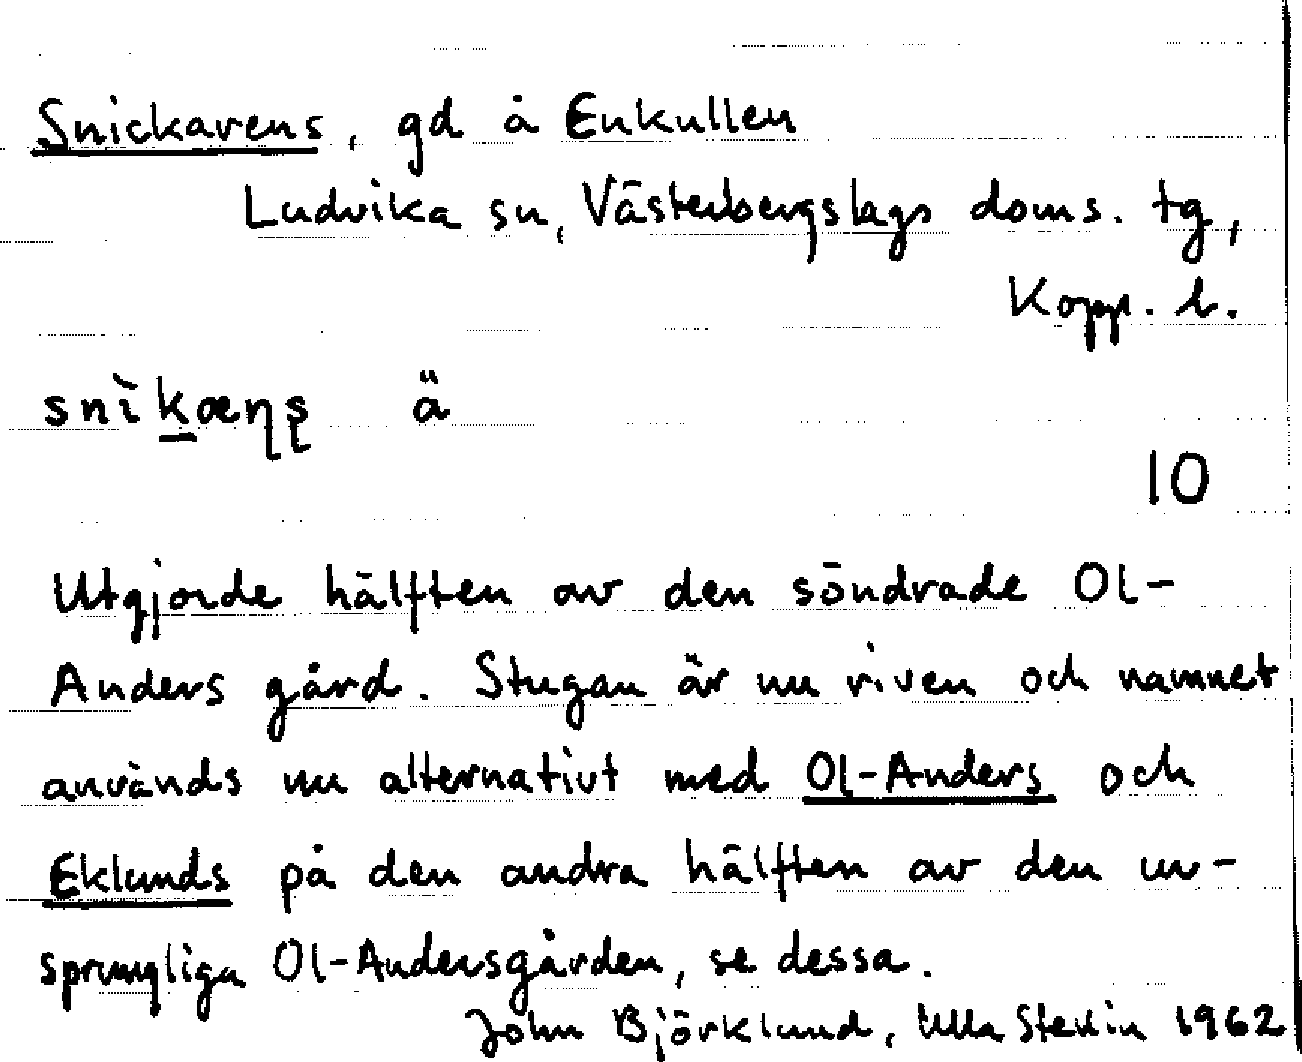 Snickarens, gd å Enkullen
Ludvika sn, Västerbergslags doms. tg,
Kopp. l.
snìkæn̢ș ä
10
Utgjorde hälften av den söndrade Ol-
Anders gård. Stugan är nu riven och namnet
används nu alternativt med Ol-Anders och
Eklunds på den andra hälften av den ur-
sprungliga Ol-Andersgården, se dessa.
John Björklund, Ulla Stenin 1962